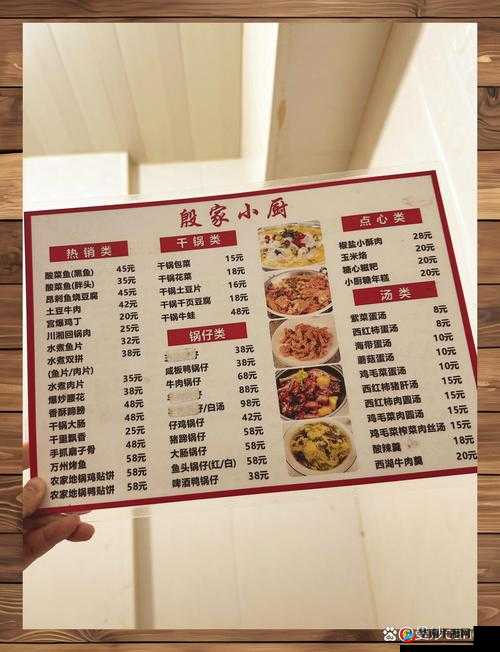 殷家小厨
热销类
酸菜鱼(黑鱼) 45元
酸菜鱼(胖头) 35元
昂刺鱼烧豆腐 45元
土豆牛肉 42元
宫爆鸡丁 20元
川湘回锅肉 25元
水煮鱼片 32元
水煮双拼 38元
(鱼片/肉片)
水煮肉片 35元
爆炒腰花 38元
香酥蹄膀 48元
干锅大肠 48元
千里飘香 25元
手抓磨子骨 48元
万州烤鱼 58元
农家地锅鸡贴饼 58元
农家地锅鸭贴饼 58元
干锅类
干锅包菜 15元
干锅花菜 18元
干锅土豆片 16元
干锅千页豆腐 18元
干锅牛蛙 48元
锅仔类
锅仔 38元
咸板鸭锅仔 38元
牛肉锅仔 68元
锅仔 88元
/白汤 98元
仔鸡锅仔 42元
猪蹄锅仔 58元
大肠锅仔 58元
鱼头锅仔(红/白) 58元
啤酒鸭锅仔 38元
点心类
椒盐小酥肉 28元
玉米烙 20元
糖心糍粑 20元
小厨糖年糕 20元
汤类
紫菜蛋汤 8元
西红柿蛋汤 8元
海带蛋汤 10元
蘑菇蛋汤 10元
鸡毛菜蛋汤 10元
西红柿猪肝汤 15元
西红柿肉圆汤 15元
鸡毛菜肉圆汤 15元
鸡毛菜榨菜肉丝汤 15元
酸辣羹 18元
西湖牛肉羹 20元